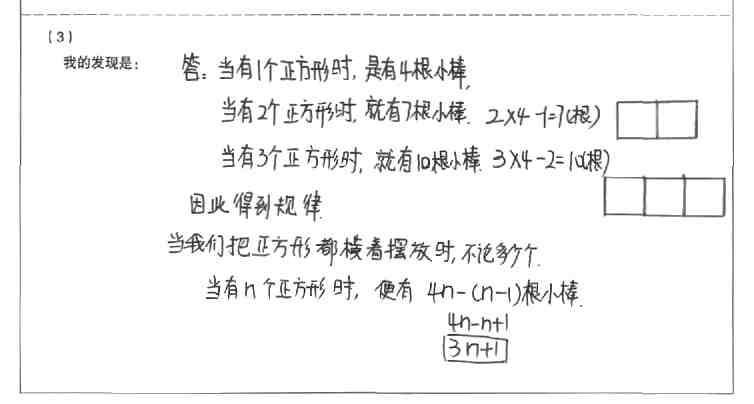 (3)
我的发现是： 答：当有1个正方形时，是有4根小棒，
当有2个正方形时，就有7根小棒. 2×4-1=7(根)
当有3个正方形时，就有10根小棒. 3×4-2=10(根)
因此得到规律
当我们把正方形都横着摆放时，不论多少个.
当有n个正方形时，便有 4n-(n-1)根小棒.
4n-n+1
3n+1